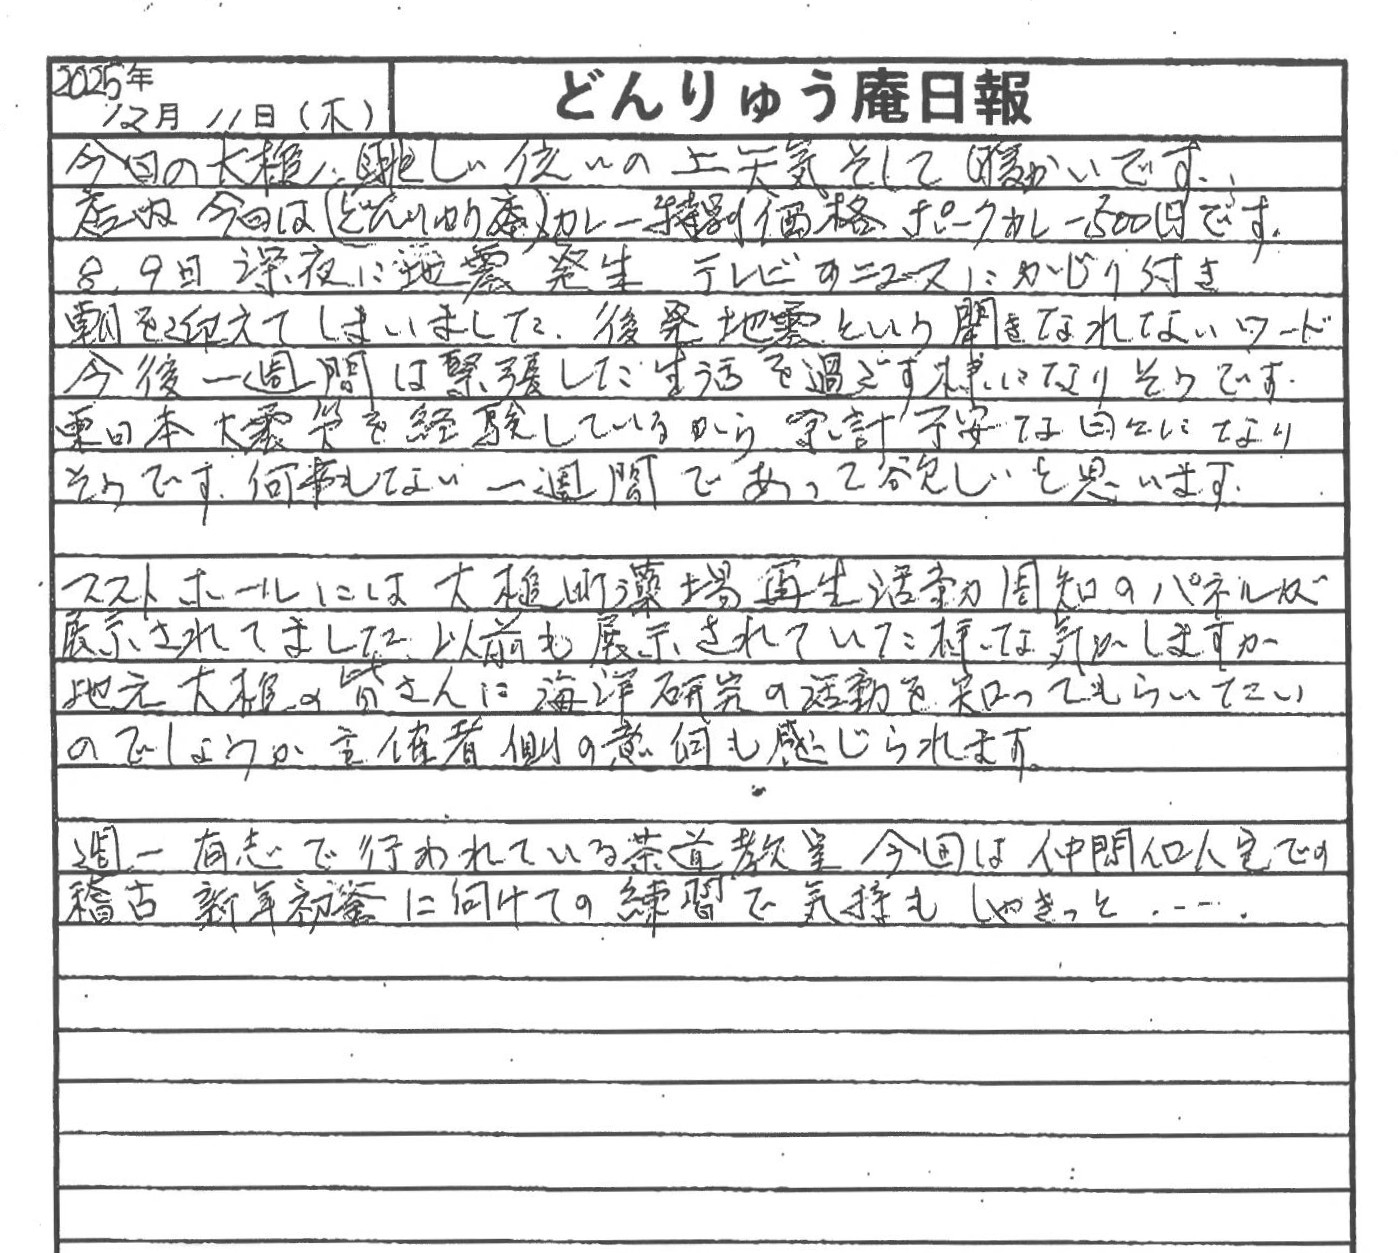 2025年
12月11日(木)
どんりゅう庵日報
今日の大槌は眩しい位いの上天気そして暖かいです..
店は今日は(どんりゅう庵)カレー特別価格ポークカレー500円です.
8.9日深夜に地震発生 テレビのニュースにかじり付き
朝を迎えてしまいました.後発地震という聞きなれないワード
今後一週間は緊張した生活を過ごす様になりそうです.
東日本大震災を経験しているから余計不安な日々になり
そうです.何事もない一週間であって欲しいと思います.
ホールには大槌町藻場再生活動周知のパネルが
展示されてました 以前も展示されていた様な気がしますが
地元大槌の皆さんに海洋研究の活動を知ってもらいたい
のでしょうか主催者側の意向も感じられます。
週一有志で行われている茶道教室 今回は仲間宅での
稽古 新年初釜に向けての練習で気持もしゃきっと.---.